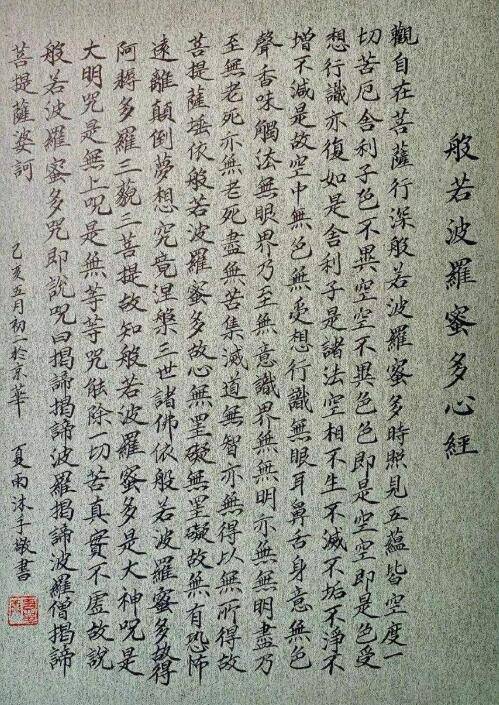 般若波羅蜜多心經
觀自在菩薩行深般若波羅蜜多時照見五蘊皆空度一
切苦厄舍利子色不異空空不異色色即是空空即是色受
想行識亦復如是舍利子是諸法空相不生不滅不垢不淨不
增不減是故空中無色無受想行識無眼耳鼻舌身意無色
聲香味觸法無眼界乃至無意識界無無明亦無無明盡乃
至無老死亦無老死盡無苦集滅道無智亦無得以無所得故
菩提薩埵依般若波羅蜜多故心無罣礙無罣礙故無有恐怖
遠離顛倒夢想究竟涅槃三世諸佛依般若波羅蜜多故得
阿耨多羅三藐三菩提故知般若波羅蜜多是大神咒是
大明咒是無上咒是無等等咒能除一切苦真實不虛故說
般若波羅蜜多咒即說咒曰揭諦揭諦波羅揭諦波羅僧揭諦
菩提薩婆訶
己亥五月初一於京華 夏雨沐手敬書